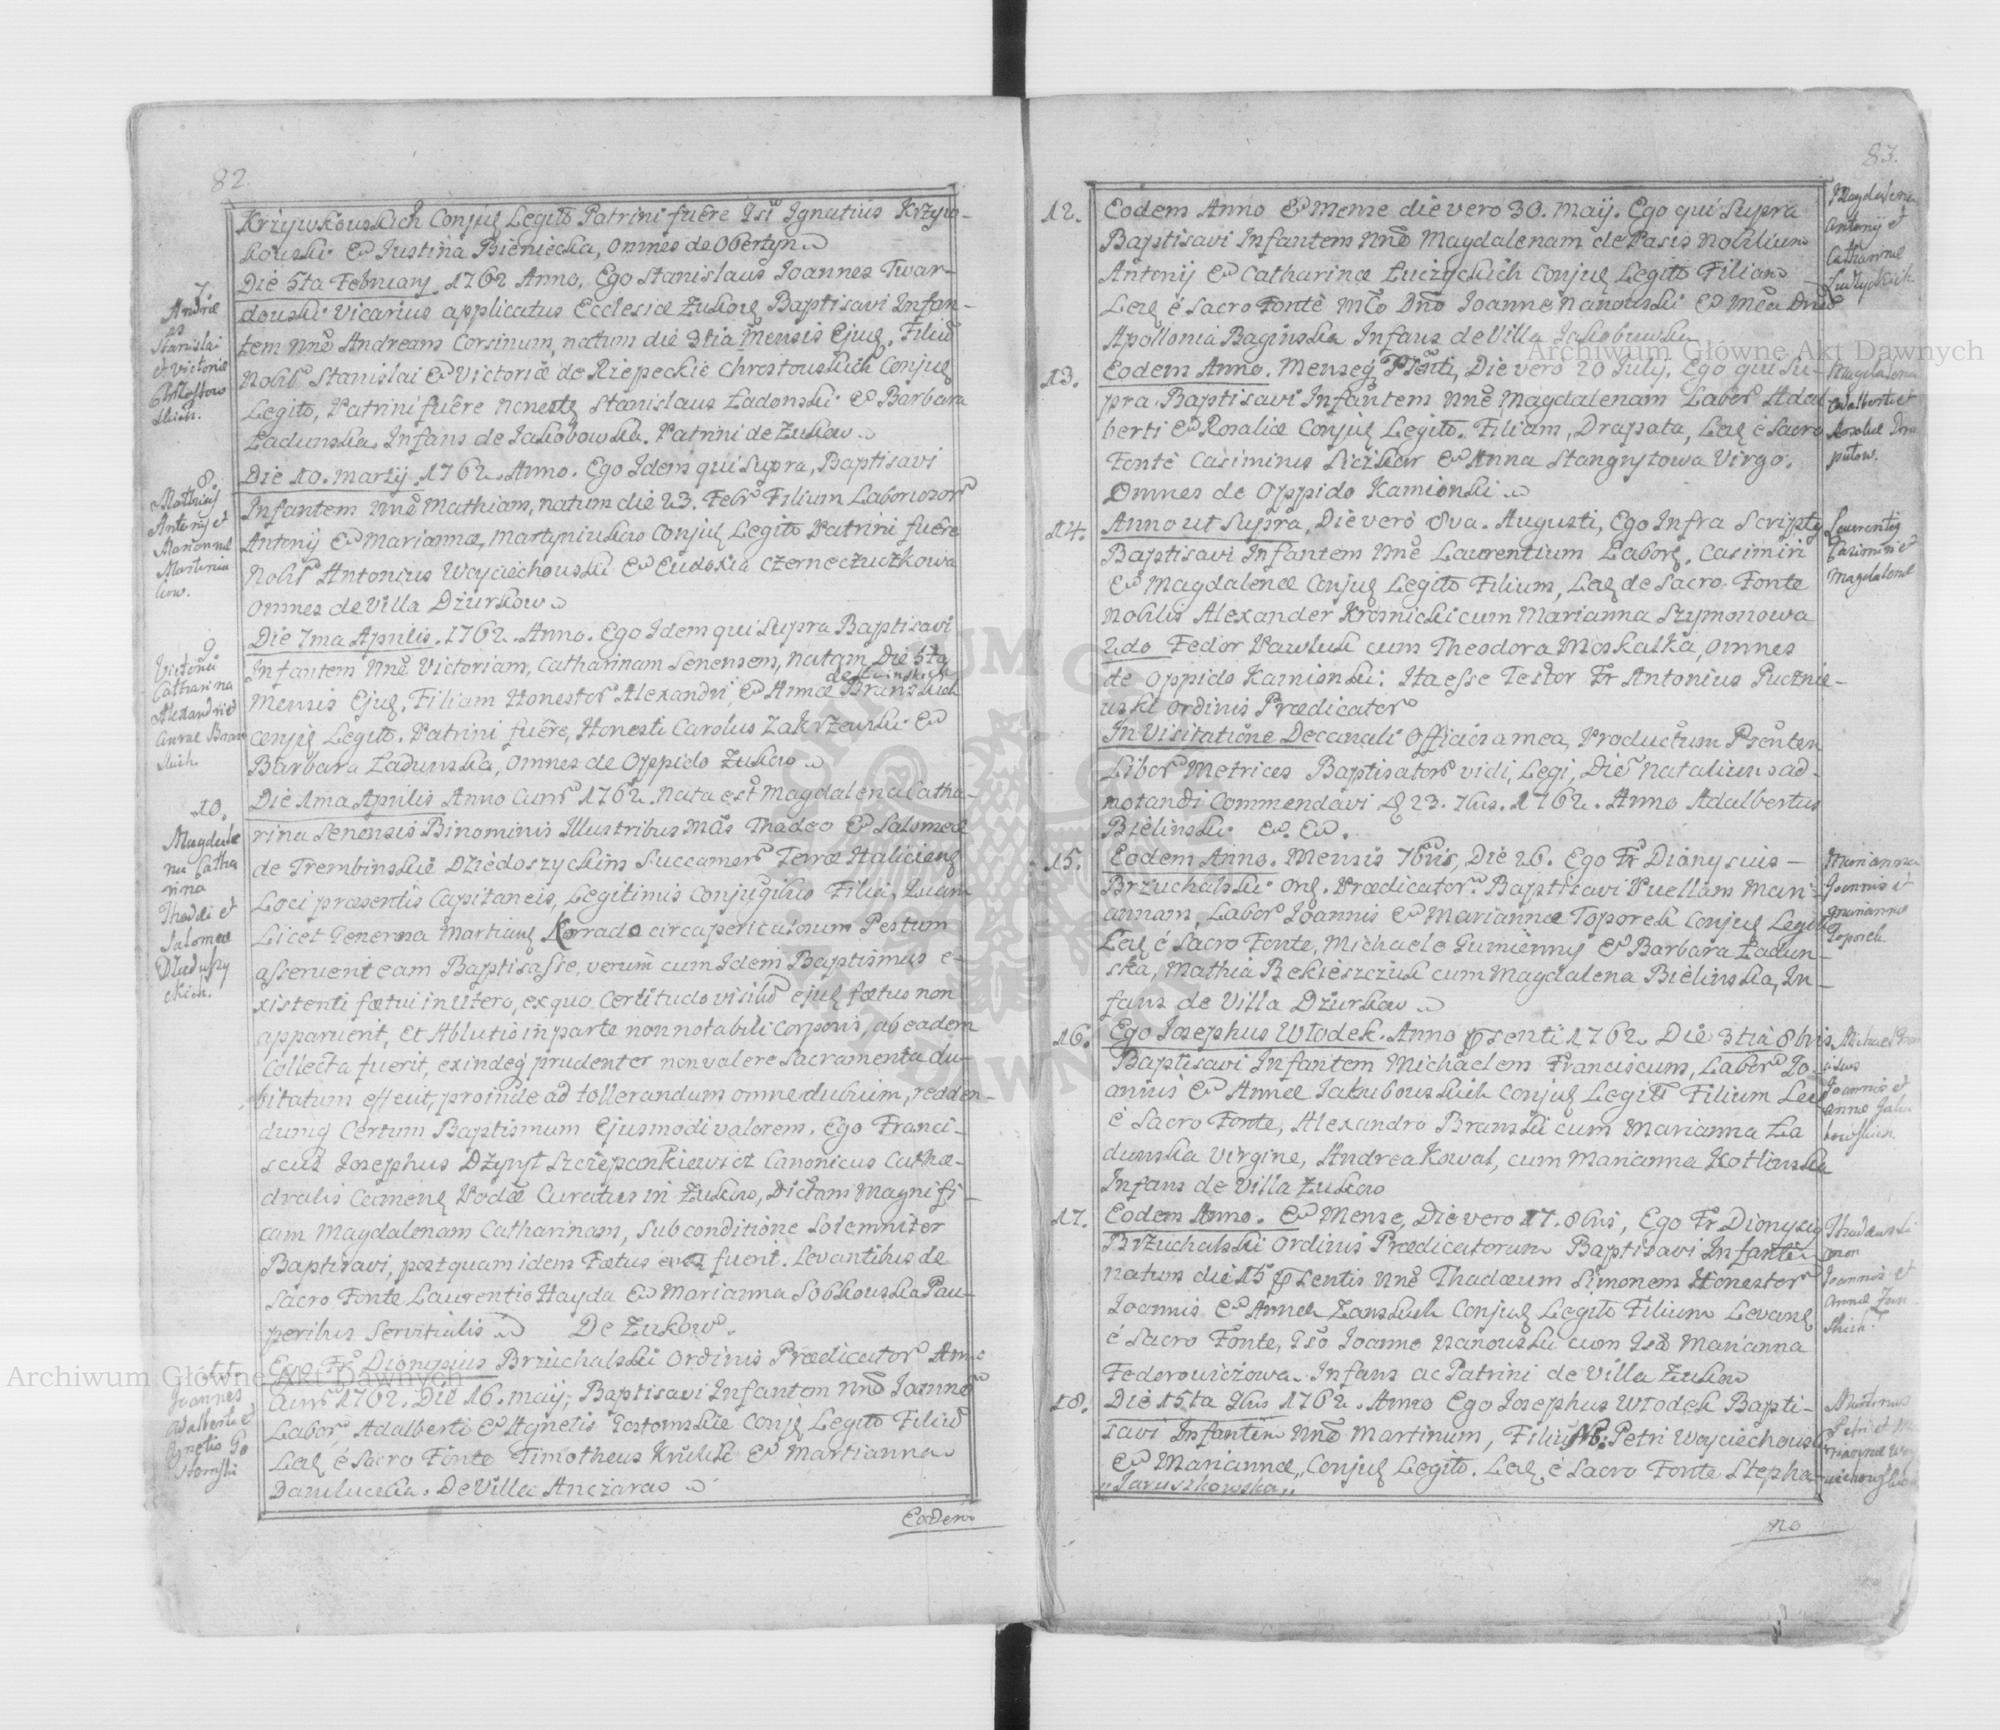 82.
Krzywkouskich Conjug Legito Patrini fuêre Gsi Ignatius Krzyw-
kouski & Justina Bieniecka, omnes de Obertyn
7.
Andræ
Stanislai
et Victoriæ
Chrostow
skich.
Die 5ta February 1762 Anno, Ego Stanislaus Joannes Twar-
douski Vicarius applicatus Ecclesiæ Żukow Baptisavi Infan-
tem Nne Andream Corsinum, natum die 3tia mensis Ejus, Filiu
Nobi Stanislai & Victoriæ de Rzepeckie Chrostouskich Conjug
Legito, Patrini fuêre Honesti Stanislaus Ładonski & Barbara
Ładunska Infans de Jakobowska. Patrini de Żukow
8.
Mathias
Antonij et
Mariannæ
Martyniu
kow.
Die 10. Martij 1762. Anno. Ego Idem qui Supra, Baptisavi
Infantem Nne Mathiam, natum die 23. Febr Filium Laboriosor
Antonij & Mariannæ, Martyniukow Conjug Legito Patrini fuêre
Nobis Antonius Woyciechouski & Eudokia Czerneczuczkowa
omnes de Villa Dżurkow
9.
Victoria
Catharina
Alexandri et
Annæ Bran
skich.
Die 7ma Aprilis. 1762. Anno. Ego Idem qui Supra Baptisavi
Infantem Nne Victoriam, Catharinam Senensem, natam Die 5ta
Mensis Ejus, Filiam Honestor Alexandri & Annæ Branskich
Conjug Legito. Patrini fuêre, Honesti Carolus Zakrzewski &
Barbara Ładunska, omnes de Oppido Żukow
10.
Magdale
na Catha
rina
Thaddi et
Salomeæ
Dzieduszy
ckich.
Die 1ma Aprilis Anno Curr 1762. Nata est Magdalena Catha-
rina Senensis Binominis Illustribus MDs Thadeo & Salomea
de Trembinskie Dziedoszyckim Succamer Terræ Haliciens
Loci præsentis Capitaneis, Legitimis Conjugibus Filia, Quam
Licet Generosa Martiana Korrado circa periculosum Pestum
asseruerit eam Baptisasse, verum cum Idem Baptismus e-
xistenti fœtui in Utero, ex quo, Certitudo visibis ejus fœtus non
apparuerit, et Ablutio in parte non notabili Corporis, ab eadem
Collecta fuerit, exindeq prudenter non valere Sacramenta du-
bitatum effecit, proinde ad tollerandum omne dubium, redden-
dumq Certum Baptismum Ejusmodi valorem. Ego Franci-
scus Josephus Dżynst Szczepankiewicz Canonicus Cathæ-
dralis Camene Podoæ Curatus in Żukow, Dictam Magnifi-
cam Magdalenam Catharinam, sub conditione Solemniter
Baptisavi, postquam idem Fœtus fuerit. Levantibus de
Sacro Fonte Laurentio Hayda & Marianna Sobkouska Pau-
peribus Servitialis De Żukow.
11.
Joannes
Adalberti et
Agnetis Go
stomski
Ego Fr Dionysius Brzuchalski Ordinis Prædicator Anno
Curr 1762. Die 16. maij; Baptisavi Infantem Nne Joanne
Labor Adalberti & Agnetis Gostomskie Conjg Legito Filiu
Leg é Sacro Fonte Timotheus Kriuk & Martianna
Daniluczka. De Villa Anczarao
Eodem
83.
12.
Eodem Anno & Mense die vero 30. Maij. Ego qui Supra
Baptisavi Infantem Nne Magdalenam de Pasis Nobilium
Antonij & Catharinæ Łuczyckich Conjug Legito Filiam
Leg é Sacro Fonte Mco Dno Joanne Nanouski & Mca Dna
Apollonia Baginska Infans de Villa Jakobuwka
Magdalena
Antonij et
Catharinæ
Łuczyckich
13.
Eodem Anno. Menseq Psenti, Die vero 20 July. Ego qui Su-
pra Baptisavi Infantem Nne Magdalenam Labor Adal
berti & Rosaliæ Conjug Legito. Filiam, Drapata, Leg é Sacro
Fonte Casimirus Siczkar & Anna Stangrytowa Virgo.
Omnes de Oppido Kamionki
Magdalena
Adalberti et
Rosaliæ Dra
patow.
14.
Anno ut Supra, Die vero 8va. Augusti, Ego Infra Scriptus
Baptisavi Infantem Nne Laurentium Labor. Casimiri
& Magdalenæ Conjug Legito Filium, Leg de Sacro Fonte
Nobilis Alexander Krosnicki cum Marianna Szymonowa
2do Fedor Pawluk cum Theodora Moskalka, omnes
de Oppido Kamionki: Ita esse Testor Fr Antonius Pucznie-
uski Ordinis Prædicator
Laurentius
Casimiri et
Magdalenæ
In Visitatione Decanali Officiosa mea, Productum Psenten
Libor Metrices Baptisator vidi, Legi, Die Natalium ad-
notandi Commendavi D 23. 7bris. 1762. Anno Adalbertus
Bielinski &. &.
15.
Eodem Anno. Mensis 7bris, Die 26. Ego Fr Dionysius -
Brzuchalski Ord. Prædicator. Baptisavi Puellam Mari-
annam, Labor Joannis & Mariannæ Toporek Conjug Legito
Leg é Sacro Fonte, Michaele Gumienny & Barbara Ładun-
ska, Mathia Rekieszczuk cum Magdalena Bielinska, In-
fans de Villa Dżurkow
Marianna
Joannis et
Mariannæ
Toporek
16.
Ego Josephus Włodek. Anno Psenti 1762. Die 3tia 8bris
Baptisavi Infantem Michaelem Franciscum, Labor Jo-
annis & Annæ Jakubouskich Conjug Legito Filium Leg
é Sacro Fonte, Alexandro Branski cum Marianna Ła
dunska Virgine, Andrea Kowal, cum Marianna Kotlinska
Infans de Villa Żukow
Michael Fran
ciscus
Joannis et
Annæ Jaku
bowskich.
17.
Eodem Anno. & Mense, Die vero 17. 8bris, Ego Fr. Dionysius
Brzuchalski Ordinis Prædicatorum Baptisavi Infante
natum die 15 psentis Nne Thadæum Simonem Honestor
Joannis & Annæ Zanskich Conjug Legito Filium Levang
é Sacro Fonte, Gso Joanne Nanouski cum Gsa Marianna
Federowiczowa. Infans ac Patrini de Villa Żukow
Thadeus Si
mon
Joannis et
Annæ Zan
skich.
18.
Die 15ta 9bris 1762. Anno Ego Josephus Włodek Bapti-
savi Infantem Nne Martinum, Filiu Nb: Petri Woyciechouski
& Mariannæ, Conjug Legito. Leg. é Sacro Fonte Stepha-
„Jaruszkowska„
Martinus
Petri et Ma
riannæ Woy
ciechowskich
no
Archiwum Główne Akt Dawnych
Archiwum Główne Akt Dawnych